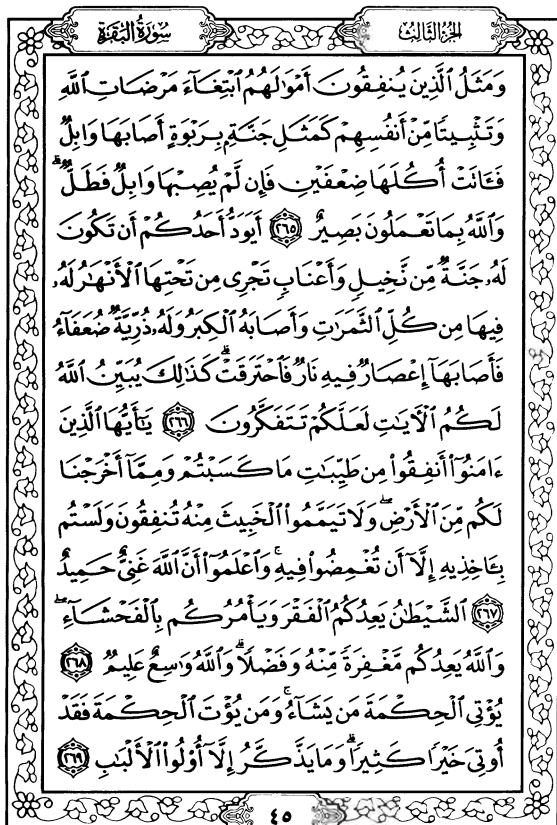 سُورَةُ البَقَرَةِ
الجُزءُ الثَّالِثُ
وَمَثَلُ ٱلَّذِينَ يُنفِقُونَ أَمْوَٰلَهُمُ ٱبْتِغَآءَ مَرْضَاتِ ٱللَّهِ
وَتَثْبِيتًا مِّنْ أَنفُسِهِمْ كَمَثَلِ جَنَّةٍۭ بِرَبْوَةٍ أَصَابَهَا وَابِلٌ
فَـَٔاتَتْ أُكُلَهَا ضِعْفَيْنِ فَإِن لَّمْ يُصِبْهَا وَابِلٌ فَطَلٌّ ۗ
وَٱللَّهُ بِمَا تَعْمَلُونَ بَصِيرٌ ٢٦٥ أَيَوَدُّ أَحَدُكُمْ أَن تَكُونَ
لَهُۥ جَنَّةٌ مِّن نَّخِيلٍ وَأَعْنَابٍ تَجْرِى مِن تَحْتِهَا ٱلْأَنْهَٰرُ لَهُۥ
فِيهَا مِن كُلِّ ٱلثَّمَرَٰتِ وَأَصَابَهُ ٱلْكِبَرُ وَلَهُۥ ذُرِّيَّةٌ ضُعَفَآءُ
فَأَصَابَهَآ إِعْصَارٌ فِيهِ نَارٌ فَٱحْتَرَقَتْ ۗ كَذَٰلِكَ يُبَيِّنُ ٱللَّهُ
لَكُمُ ٱلْـَٔايَٰتِ لَعَلَّكُمْ تَتَفَكَّرُونَ ٢٦٦ يَٰٓأَيُّهَا ٱلَّذِينَ
ءَامَنُوٓا۟ أَنفِقُوا۟ مِن طَيِّبَٰتِ مَا كَسَبْتُمْ وَمِمَّآ أَخْرَجْنَا
لَكُم مِّنَ ٱلْأَرْضِ ۖ وَلَا تَيَمَّمُوا۟ ٱلْخَبِيثَ مِنْهُ تُنفِقُونَ وَلَسْتُم
بِـَٔاخِذِيهِ إِلَّآ أَن تُغْمِضُوا۟ فِيهِ ۚ وَٱعْلَمُوٓا۟ أَنَّ ٱللَّهَ غَنِىٌّ حَمِيدٌ
٢٦٧ ٱلشَّيْطَٰنُ يَعِدُكُمُ ٱلْفَقْرَ وَيَأْمُرُكُم بِٱلْفَحْشَآءِ ۖ
وَٱللَّهُ يَعِدُكُم مَّغْفِرَةً مِّنْهُ وَفَضْلًا ۗ وَٱللَّهُ وَٰسِعٌ عَلِيمٌ ٢٦٨
يُؤْتِى ٱلْحِكْمَةَ مَن يَشَآءُ ۚ وَمَن يُؤْتَ ٱلْحِكْمَةَ فَقَدْ
أُوتِىَ خَيْرًا كَثِيرًا ۗ وَمَا يَذَّكَّرُ إِلَّآ أُو۟لُوا۟ ٱلْأَلْبَٰبِ ٢٦٩
٤٥